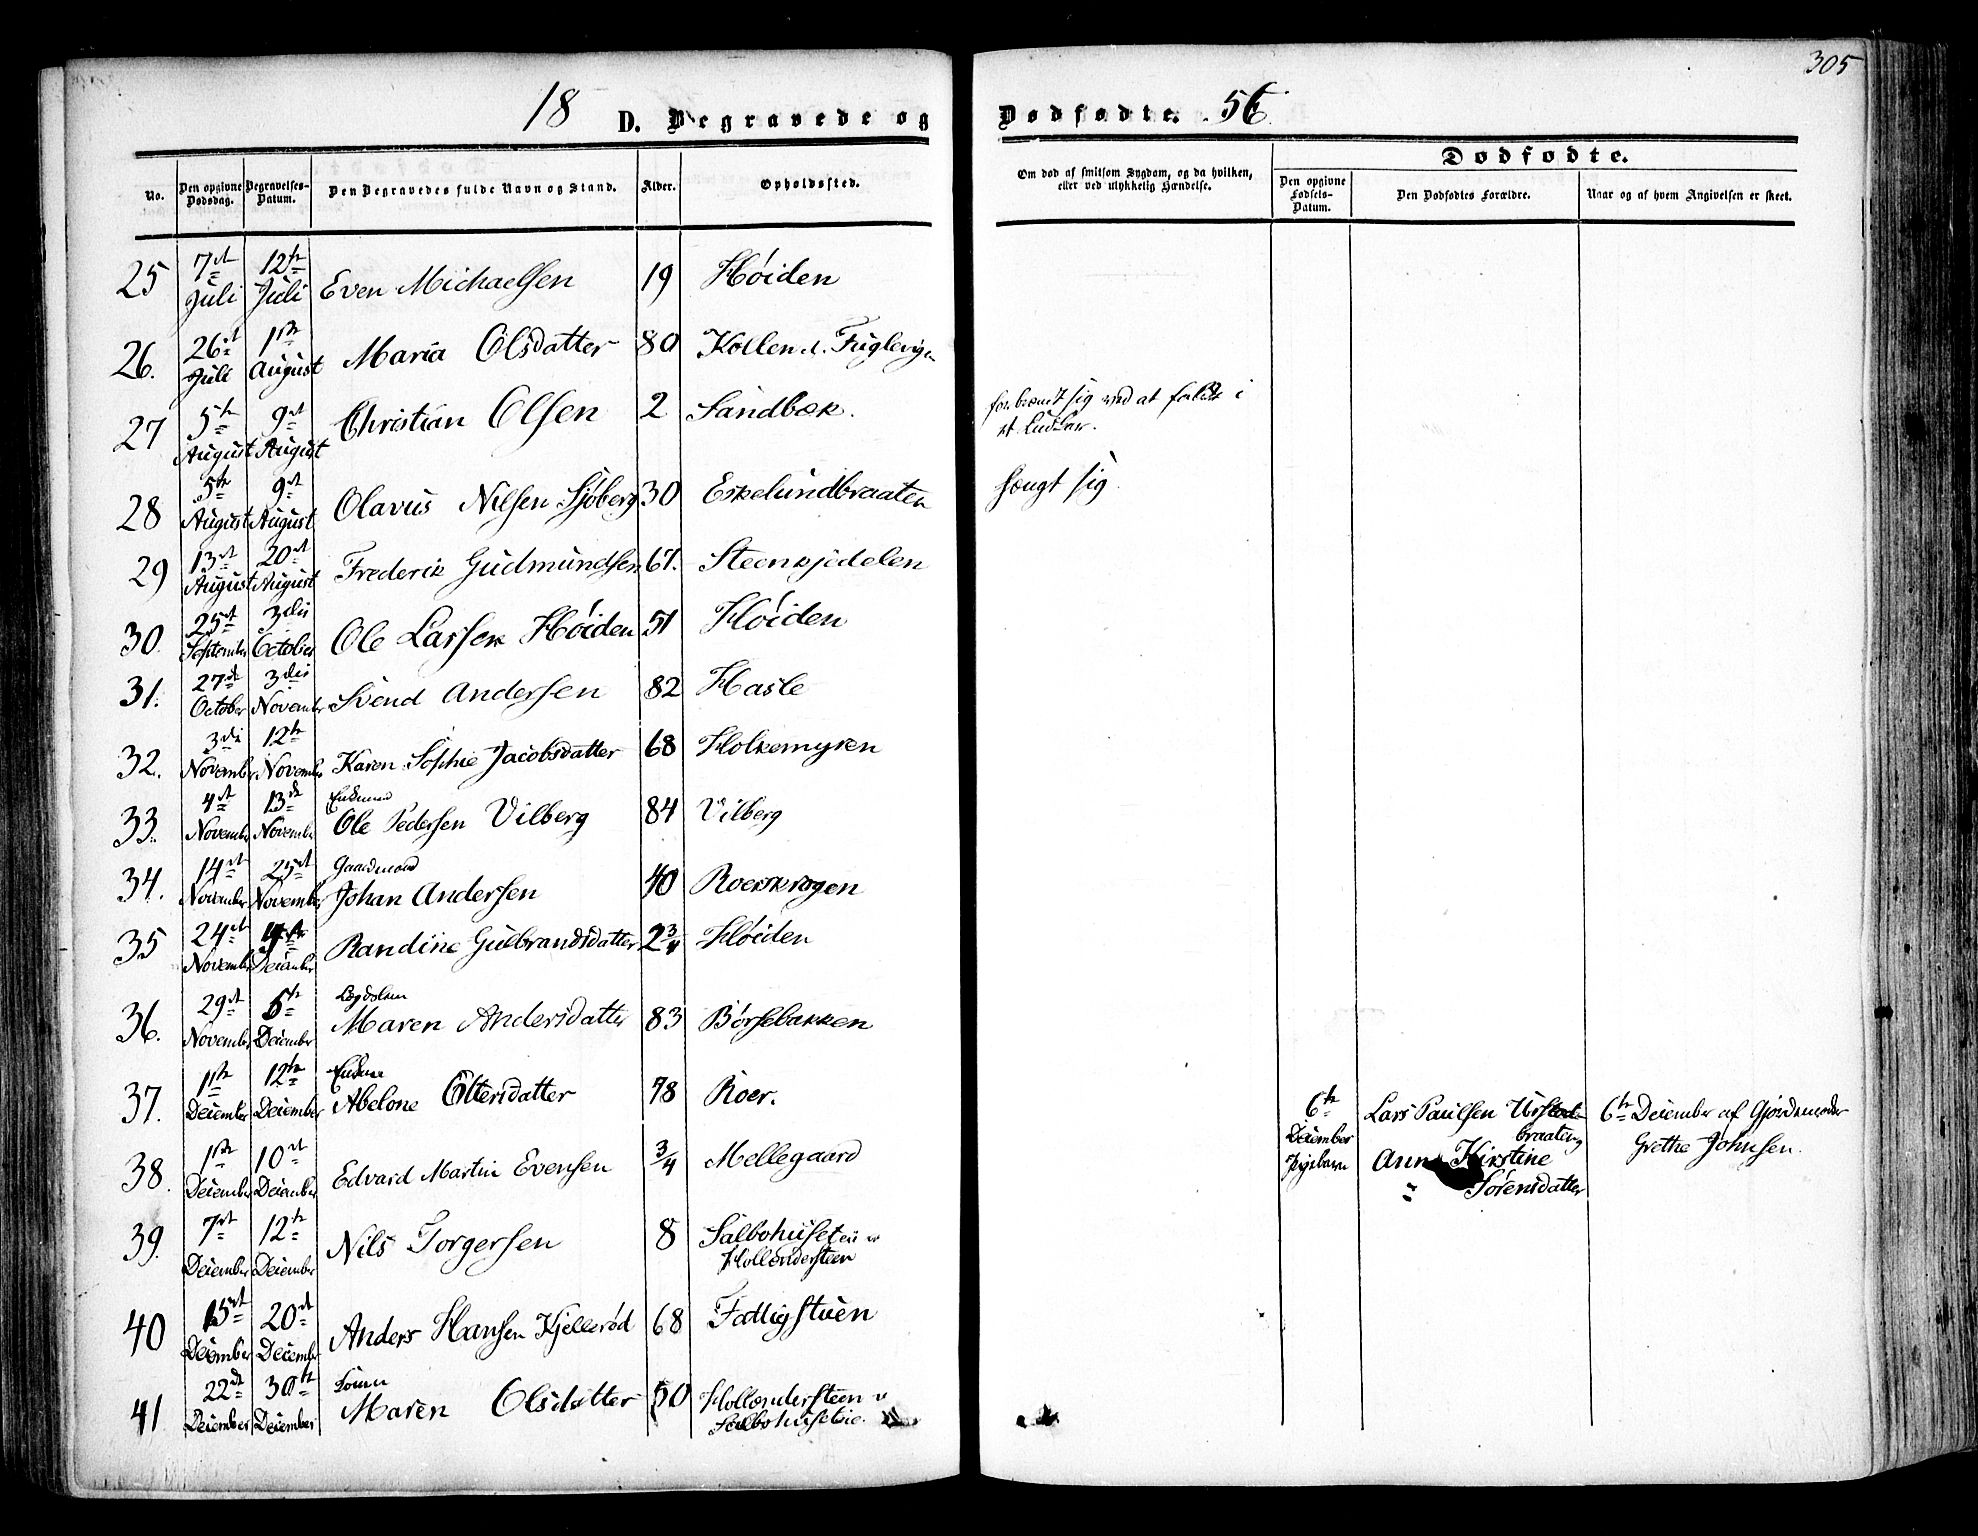 305
18 D. Begravede og Dødfødte. 56.
No. Den opgivne Dødsdag. Begravelses-Datum. Den Begravedes fulde Navn og Stand. Alder. Opholdssted.
Om død af smitsom Sygdom, og da hvilken, eller ved ulykkelig Hændelse.
Dødfødte.
Den opgivne Fødsels-Datum. Den Dødfødtes Forældre. Naar og af hvem Angivelsen er skeet.
25 7de Juli 12te Juli Even Michaelsen 19 Høiden
26. 26de Juli 1ste August Maria Olsdatter 80 Kollen
27 5te August 9de August Christian Olsen 2 Sandbæk. forbrændt sig ved at falde i
28 5te August 9de August Olavus Nilsen Sjøberg 30 Eskelundbraaten hængt sig.
29 13de August 20de August Frederik Gudmundsen 67. Steenkjødelen
30. 25de September 3die October Ole Larsen Høiden 51 Høiden
31. 27de October 3die November Svend Andersen 82 Hasle
32. 3die November 12te November Karen Sophie Jacobsdatter 68 Holkemyren
33. 4de November 13de November Enkemand
Ole Pedersen Vilberg 84 Vilberg
34. 14de November 25de November Gaardmand
Johan Andersen 40 Roerskrogen
35 24de November 4de December Randine Gulbrandsdatter 2 3/4 Høiden
36. 29de November 5te December Lægdslem
Maren Andersdatter 83 Børsebakken
37. 11te December 12te December Enken
Abelone Ottersdatter 78 Roer.
6te December Pigebarn Lars Paulsen
braaten
Anne Kirstine
Sørensdatter
6te December af Gjordemoder
Grethe Johnsen.
38. 1ste December 10de December Edvard Martin Evensen 3/4 Mellegaard
39. 7de December 12te December Nils Torgersen 8 Salbohuset
Hollændersteen
40 15de December 20de December Anders Hansen Kjellerød 68 Fattigstuen
41 22de December 30te December
Maren Olsdatter 50 Hollændersteen v